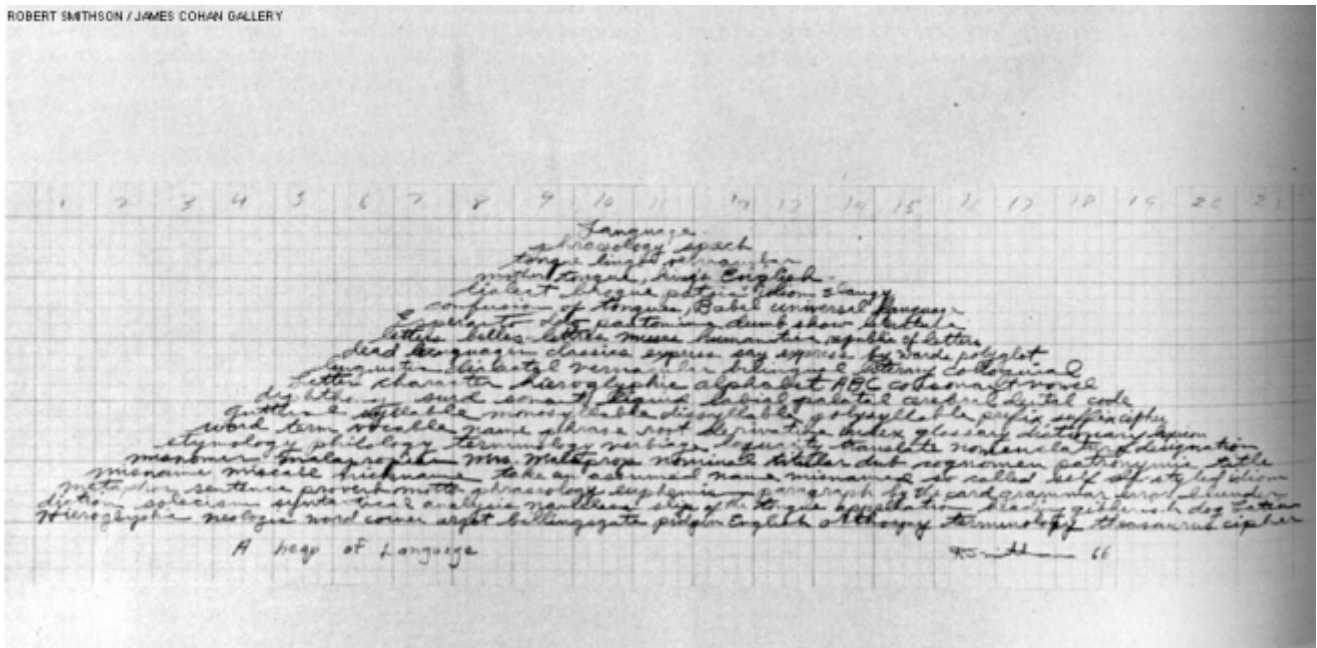 ROBERT SMITHSON / JAMES COHAN GALLERY
1 2 3 4 5 6 7 8 9 10 11 12 13 14 15 16 17 18 19 20 21
Language
phraseology speech
tongue lingua vernacular
mother tongue, King's English
dialect brogue patois idiom slangy
confusion of tongues, Babel universal language
Esperanto pantomime dumb show
letters belles-lettres muses humanities republic of letters
dead languages classics express say express by words polyglot
linguistic dialectal vernacular bilingual literary colloquial
letter character hieroglyphic alphabet ABC consonant vowel
diphthong surd sonant liquid labial palatal cerebral dental code
guttural syllable monosyllable dissyllable polysyllable prefix suffix cipher
word term vocable name phrase root derivative index glossary dictionary lexicon
etymology philology terminology verbiage loquacity translate nomenclature designation
misnomer malaprop Mrs. Malaprop nominal titular dub cognomen patronymic title
misname miscall nickname take an assumed name misnamed so called self styled idiom
metaphor sentence proverb motto phraseology euphemism paragraph by the card grammar error blunder
diction solecism syntax analysis slip of the tongue appellation gibberish dog Latin
Hieroglyphic neologist word coiner argot billingsgate pidgin English terminology thesaurus cipher
A heap of Language
RSmithson 66